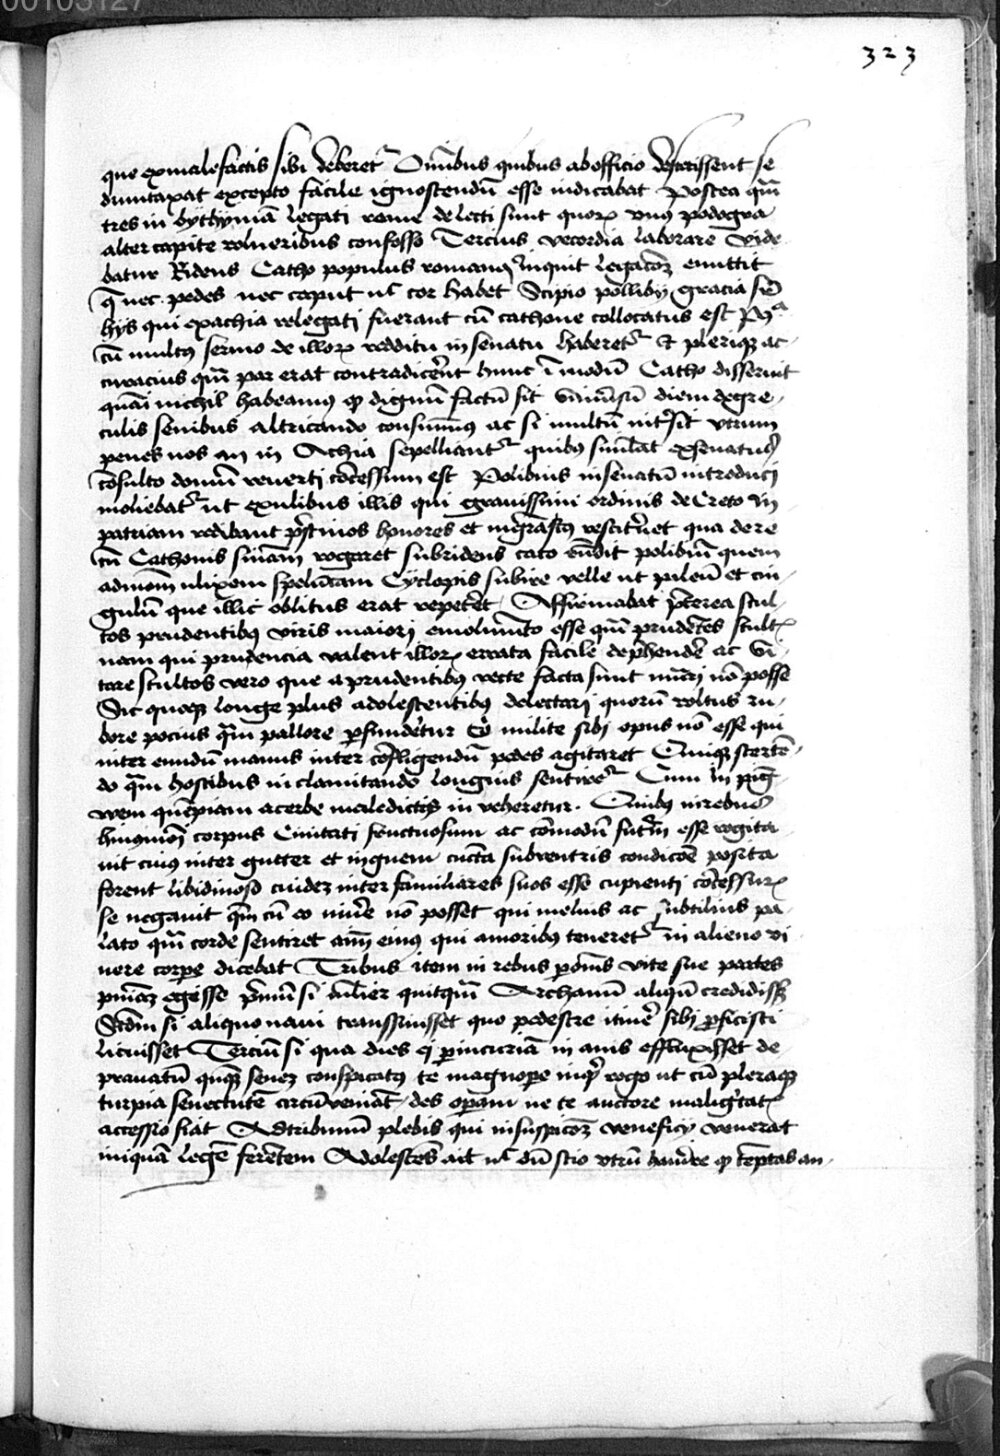 323
que ex malefactis sibi deberet᷑ Omībus quibus ab officio destitissent se
dumtaxat excepto facile ignoscendū esse iudicabat Postea qm̄
tres in bythyniā legati rome delecti sunt quorꝝ vnus podogra
alter capite volneribus confosso Tercius vecordia laborare vide
batur Ridens Catho populus romanꝰ inquit legacōꝫ emittit
q̄ nec pedes nec caput nec cor habet Scipio pollibij gracia sup̄
hijs qui ex achia relegati fuerant cū cathone collocutus est
cū multus sermo de illorꝝ redditu in senatu haberet᷑ Et plerique ac
curacius qm̄ par erat contradicerent hunc ī modū Catho disseruit
quasi nichil habeamus quod dignū factū sit vniuersū diem de gre
culis senibus altricando consumimus ac si multū intersit vtrum
penes nos an in Achia sepelliant᷑ quibus simulac ex senatus
cōsulto domū reuerti cōcessum est Polibius in senatū introduci
moliebat᷑ ut exulibus illis qui grauissimi ordinis decreto in
patriam redibant pristinos honores et restitueret qua de re
cū Cathonis sentētiam rogaret subridens cato rn̄dit polibiū quem
admodum ulixem speluncam Cyclopis subire velle ut pileū et cin
gulū que illic oblitus erat repeteret Affirmabat preterea stul
tos prudentibus viris maiori emolumēto esse qm̄ prudētes stultis
nam qui prudencia valent illorꝝ errata facile deprehendere ac vi
tare stultos vero que a prudentibus recte facta sunt imitari nō posse
Sic quoque longe plus adolescentibus delectari quorū voltus ru
bore pocius qm̄ pallore perfundetur Eo milite sibi opus nō esse qui
inter eundū manus inter cōfligendū pedes agitaret Quique sterten
do qm̄ hostibus inclamitando longius sentiret᷑ Cum in ping
wem quempiam acerbe maledictis inveheretur. Quibus in rebus
huiusmodi corpus Ciuitati fructuosum ac cōmodū futurū esse cogita
uit cuius inter gutter et inguem cuncta sub ventris condicōe posita
forent libidinoso cuidam inter familiares suos esse cupienti cōcessurꝝ
se negauit quoniam cū eo viuere nō posset qui melius ac subtilius pa
lato qm̄ corde sentiret animū eius qui amoribus teneret᷑ in alieno vi
uere corpore dicebat Tribus item in rebus omnis vite sue partes
egisse Primū si mulier quitquā Archanū aliquā credidisset
Secundum si aliquo naui transfuisset quo pedestre itinere sibi proficisci
licuisset Tercium si qua dies ei per incuriā inanis effluxisset de
prauatū quemque senem conspicatus te magnopere inquit rogo ut cū pleraque
turpia senectutē circūveniāt des operam ne te auctore malignitatis
accessio fiat Ad tribunū plebis qui in suspicionem veneficij venerat
iniquā legē ferentem Adolescens ait scio vtrū haurire quod temperas an